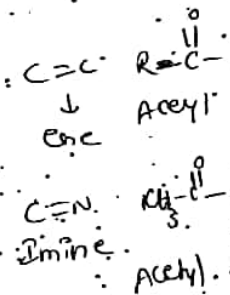 O
C=C R-C-
↓ Acyl
ene
O
C=N CH3-C-
Imine.
Acetyl.